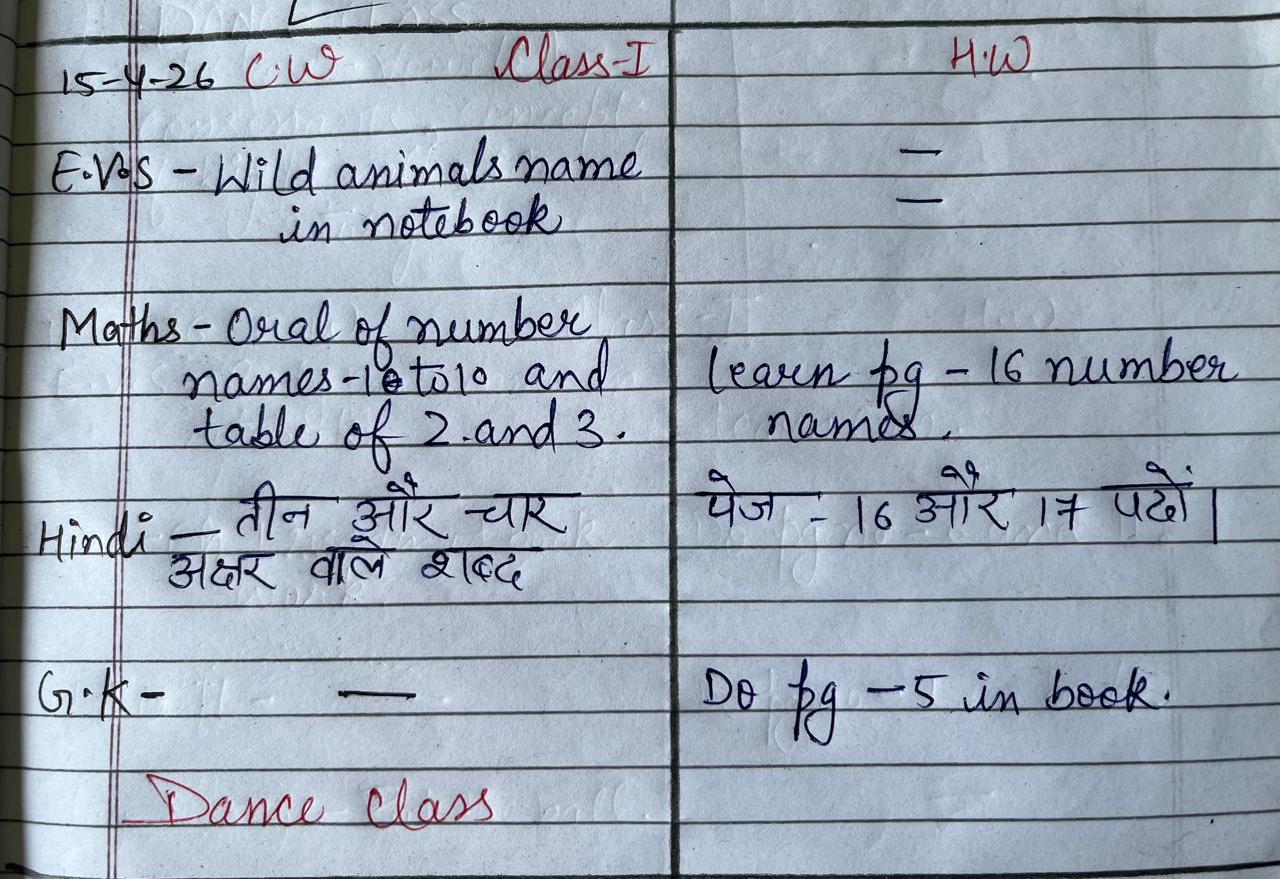 15-4-26 C.W Class-I H.W
E.V.S - Wild animals name
in notebook
Maths - Oral of number
names-1 to 10 and
table of 2 and 3.
learn pg - 16 number
names.
Hindi - तीन और चार
अक्षर वाले शब्द
पेज - 16 और 17 पढों।
G.K - —
Do pg - 5 in book.
Dance Class